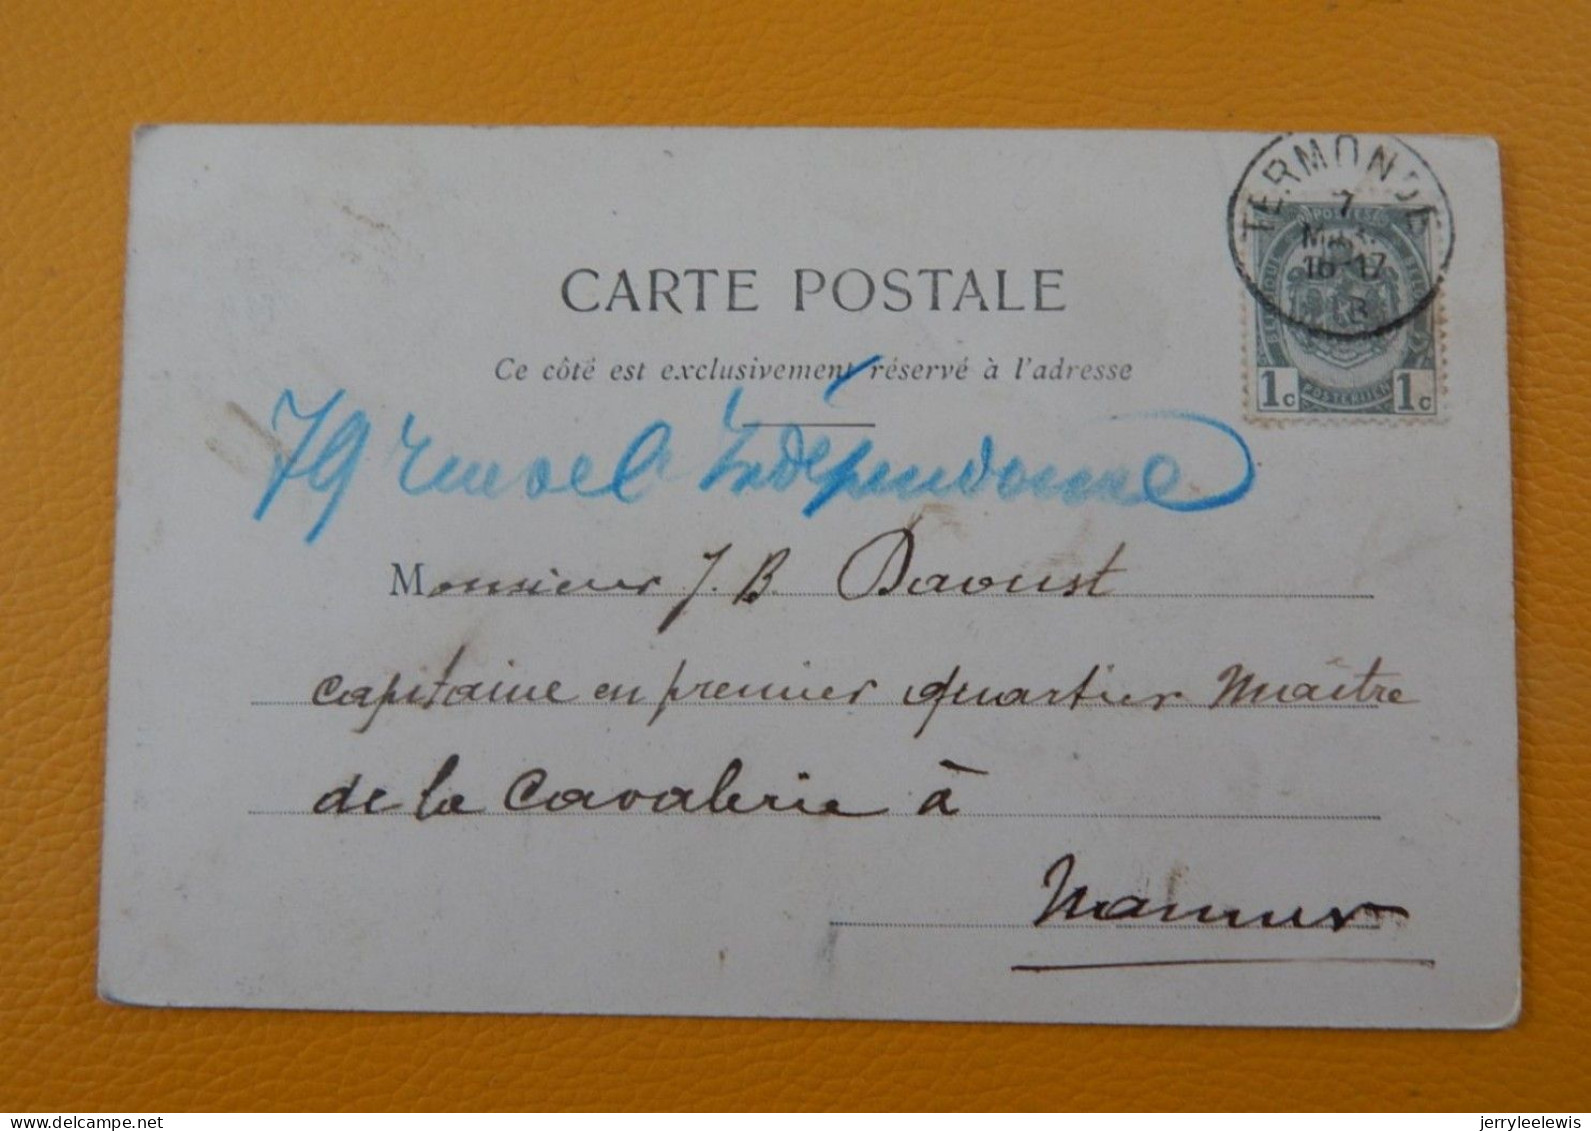 CARTE POSTALE
Ce côté est exclusivement réservé à l'adresse
TERMONDE
7
16-17
POSTES
BELGIQUE
POSTERIJEN
1c 1c
79 rue de l'Indépendance
Monsieur J. B. Daoust
capitaine en premier quartier maître
de la Cavalerie à
Namur
www.delcampe.net
jerryleelewis